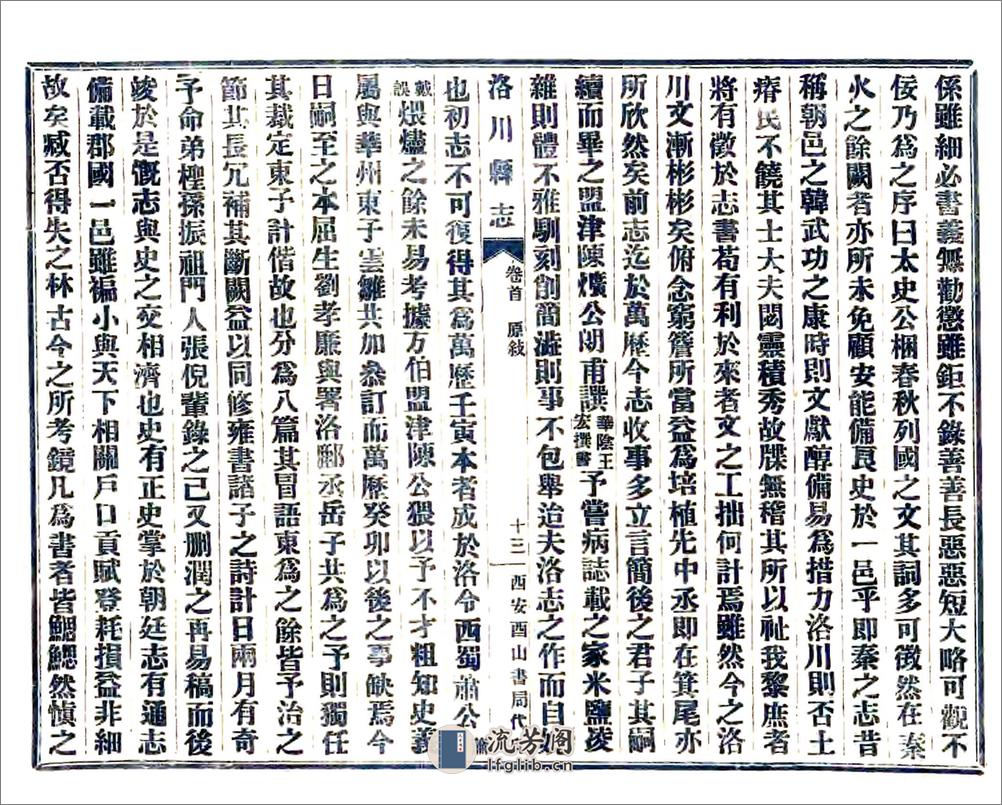 係雖細必書義無勸懲雖鉅不錄善善長惡惡短大略可觀不
佞乃為之序曰太史公梱春秋列國之文其詞多可徵然在秦
火之餘闕者亦所未免顧安能備良史於一邑乎即秦之志昔
稱朝邑之韓武功之康時則文獻醇備易為措力洛川則否土
瘠民不饒其士大夫閟靈積秀故牒無稽其所以祉我黎庶者
將有徵於志書苟有利於來者文之工拙何計焉雖然今之洛
川文漸彬彬矣俯念窮簷所當益為培植先中丞即在箕尾亦
所欣然矣前志迄於萬歷今志收事多立言簡後之君子其嗣
續而畢之盟津陳爌公朗甫譔華陰王宏撰書予嘗病誌載之家米鹽凌
雜則體不雅馴刻削簡澁則事不包舉迨夫洛志之作而自
洛川縣志 卷首 原敍 十三 西安酉山書局代
也初志不可復得其為萬歷壬寅本者成於洛令西蜀肅公
戴誤煨燼之餘未易考據方伯盟津陳公猥以予不才粗知史義
屬與華州東子雲雛共加叅訂而萬歷癸卯以後之事缺焉今
日嗣至之本屈生劉孝廉與署洛鄜丞岳子共為之予則獨任
其裁定東子計偕故也分為八篇其冒語東為之餘皆予治之
節其長冗補其斷闕益以同修雍書諸子之詩計日兩月有奇
予命弟檉孫振祖門人張倪輩錄之已又刪潤之再易稿而後
竣於是慨志與史之交相濟也史有正史掌於朝廷志有通志
備載郡國一邑雖褊小與天下相關戶口貢賦登耗損益非細
故矣臧否得失之林古今之所考鏡凡為書者皆鰓鰓然慎之
流芳阁
lfglib.cn